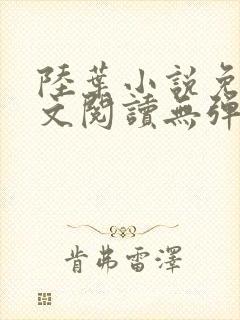 陸葉小說免
文閱讀無彈
肯弗雷澤